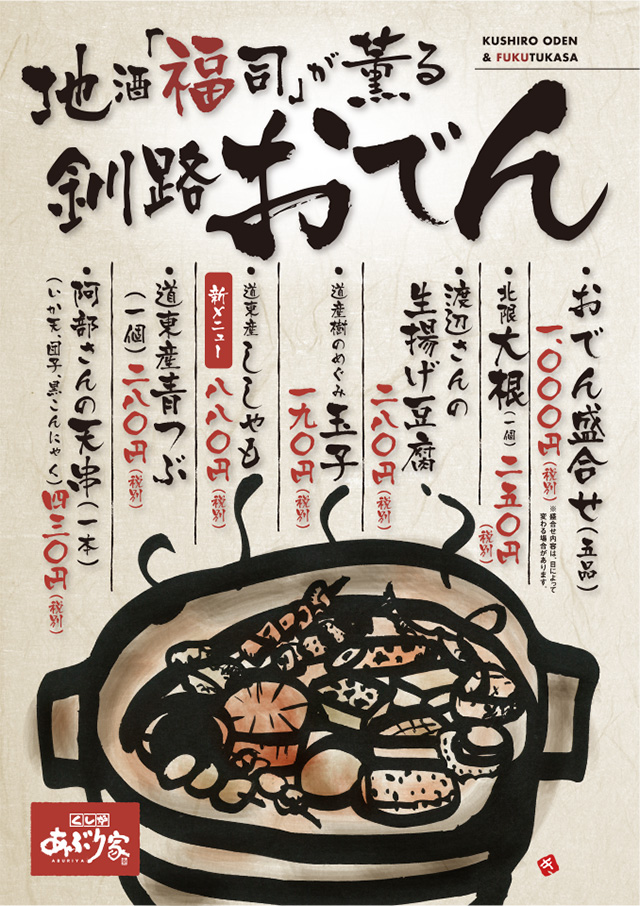 地酒「福司」が薫る
KUSHIRO ODEN
& FUKUTUKASA
釧路おでん
・おでん盛合せ(五品)
一、〇〇〇円(税別)
※盛合せ内容は、日によって
変わる場合があります。
・北限大根(一個)
二五〇円(税別)
・渡辺さんの
生揚げ豆腐
二八〇円(税別)
・道産樹のめぐみ玉子
一九〇円(税別)
・道東産ししゃも
新メニュー
八八〇円(税別)
・道東産青つぶ
(一個)二八〇円(税別)
・阿部さんの天串(一本)
(いか天、団子、黒こんにゃく)四三〇円(税別)
くし炉
あぶり家
ABURIYA